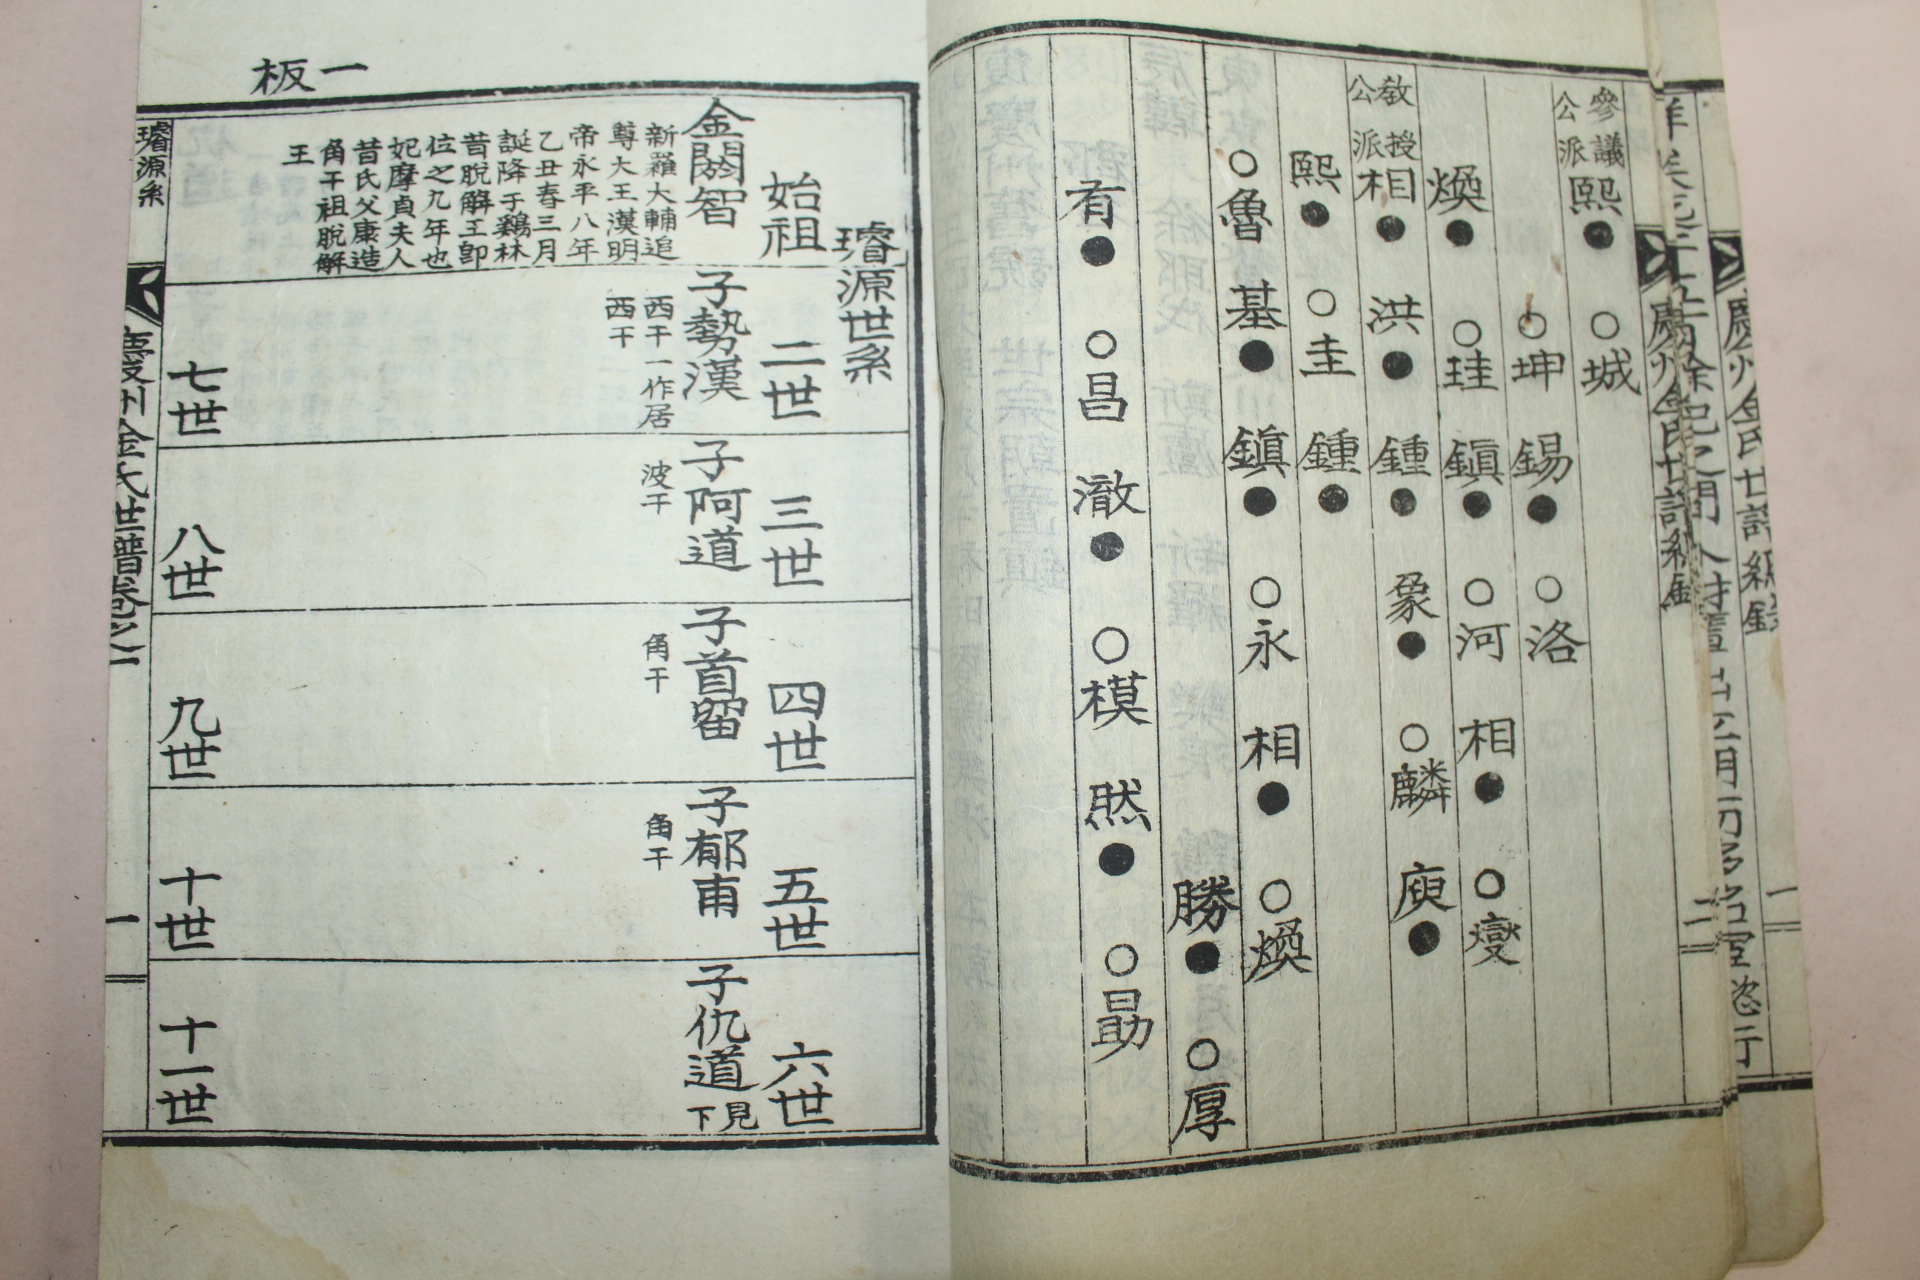 參議公派
熙●
○城
○坤
錫●
○洛
煥●
○珪
鎭●
○河
相●
○燮
教授公派
相●
洪●
鍾●
象●
○麟
庾●
熙●
○圭
鍾●
○魯
基●
鎭●
○永
相●
○煥
勝●
○厚
有●
○昌
澈●
○模
然●
○勗
板一
璿源世系
始祖
金閼智
新羅大輔追
尊大王漢明
帝永平八年
乙丑春三月
誕降于鷄林
昔脫解王卽
位之九年也
妃摩貞夫人
昔氏父康造
角干祖脫解
王
二世
子勢漢
西干一作居
西干
三世
子阿道
波干
四世
子首留
角干
五世
子郁甫
角干
六世
子仇道
見下
七世
八世
九世
十世
十一世
璿源系
慶州金氏世譜卷之一
一